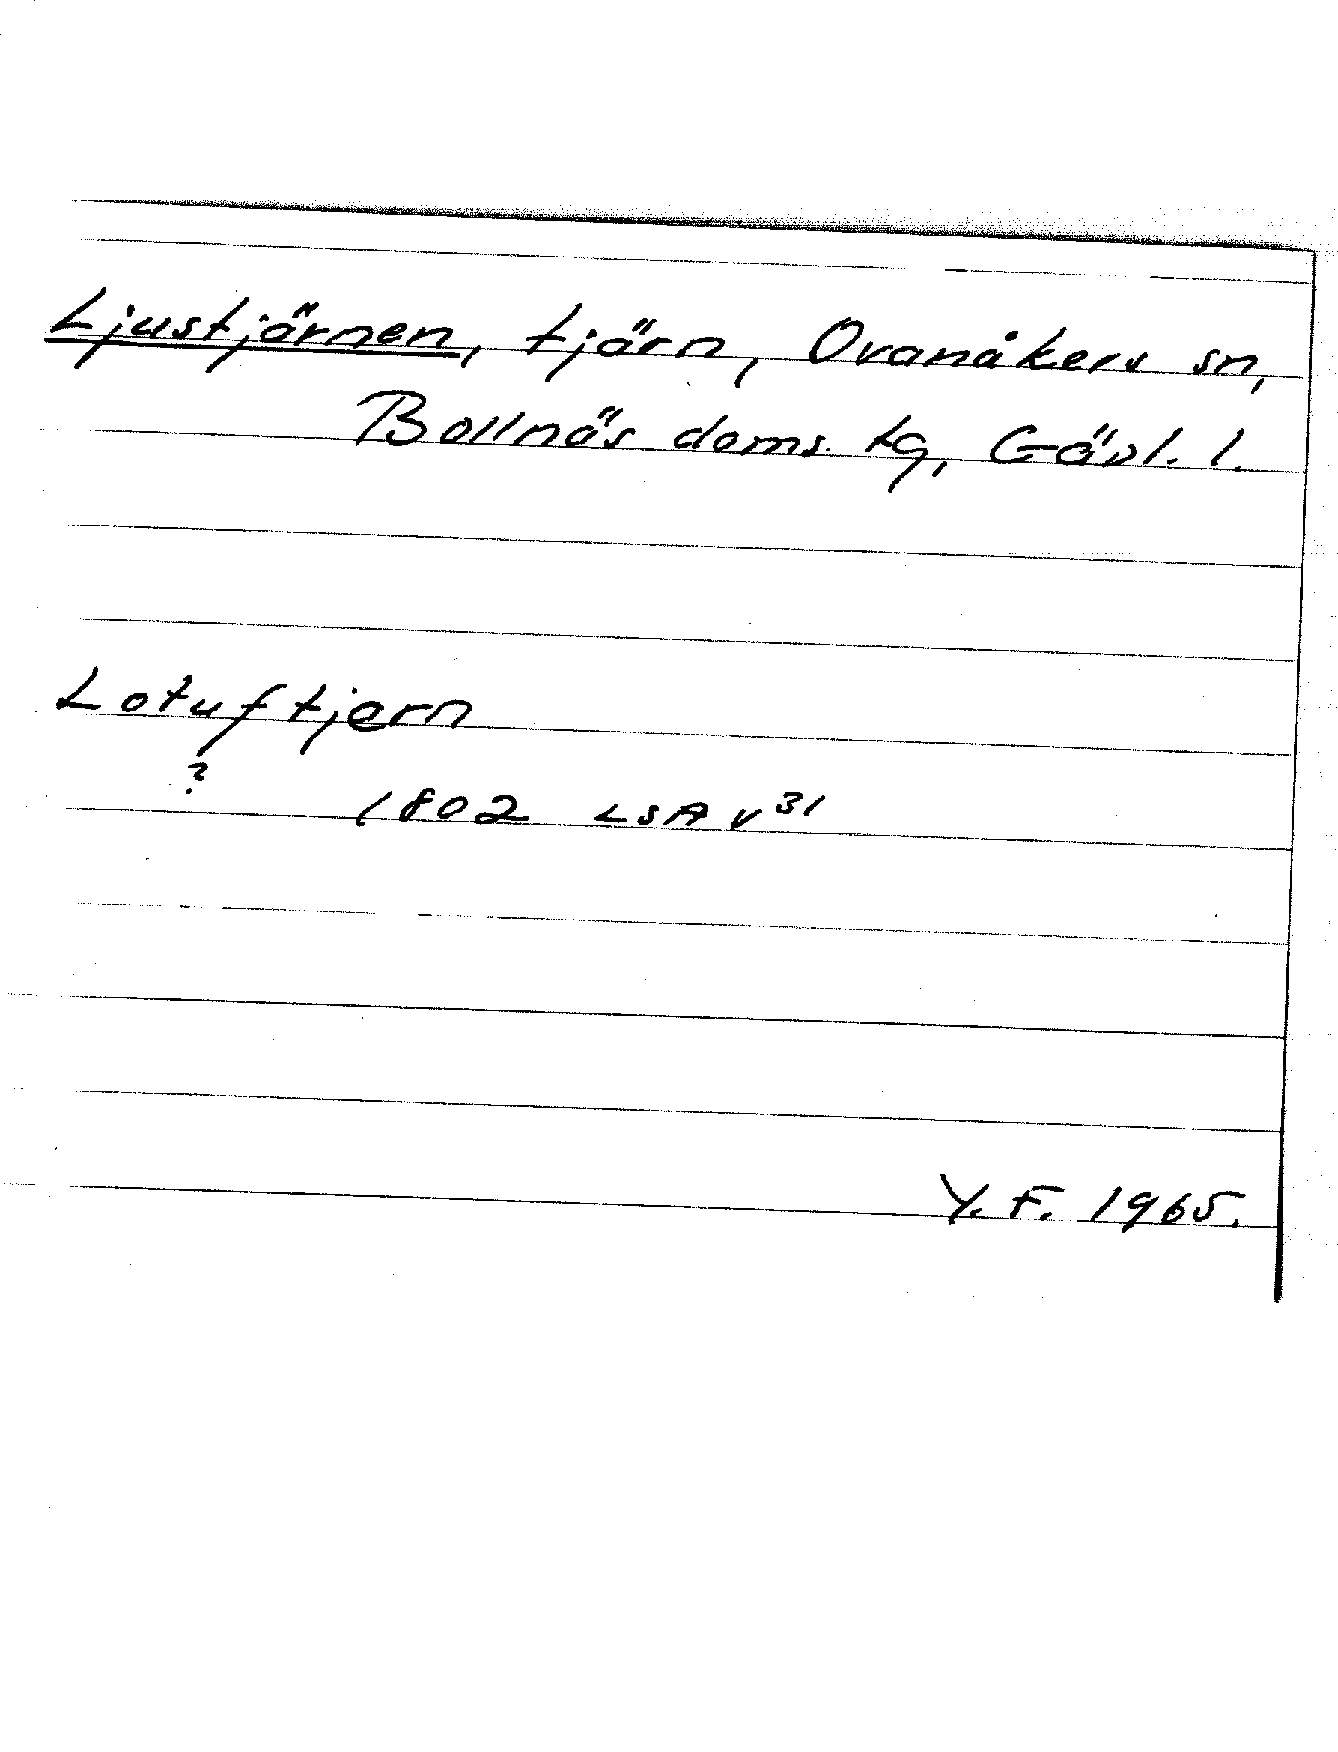 Ljustjärnen, tjärn, Ovanåkers sn,
Bollnäs doms. tg, Gävl. l.
Lotuftjern
?
1802 LSA v 31
Y. F. 1965.